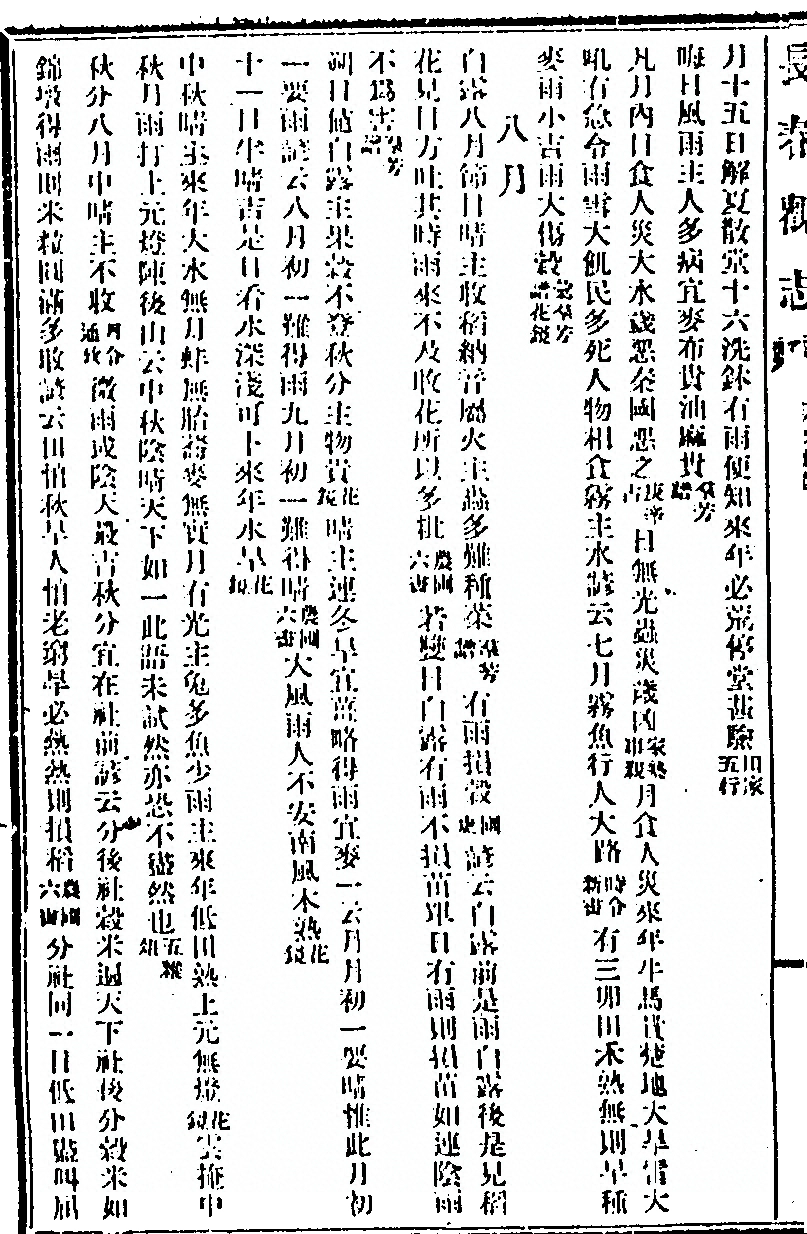 長春觀志
月十五日解夏散堂十六洗鉢有雨便知來年必荒停堂甚驗田家五行
晦日風雨主人多病宜麥布貴油麻貴羣芳譜
凡月內日食人災大水歲惡秦國惡之 日無光蟲災歲凶 月食人災來年牛馬貴楚地大旱雷大
吼有急令雨雹大飢民多死人物相食霧主水諺云七月霧魚行人大路時令新書有三卯田禾熟無則早種
麥雨小吉雨大傷穀羣芳譜花鏡
八月
白露八月節日晴主收稻納音屬火主蟲多難種菜羣芳譜有雨損穀 諺云白露前是雨白露後是鬼稻
花見日方吐其時雨來不及收花所以多秕農圃六書若雙日白露有雨不損苗單日有雨則損苗如連陰雨
不爲害羣芳譜
朔日值白露主果穀不登秋分主物貴花鏡晴主連冬旱宜薑略得雨宜麥一云月月初一要晴惟此月初
一要雨諺云八月初一難得雨九月初一難得晴農圃六書大風雨人不安南風禾熟花鏡
十一日 晴吉是日看水深淺可卜來年水旱花鏡
中秋晴主來年大水無月蚌無胎蕎麥無實月有光主兔多魚少雨主來年低田熟上元無燈花鏡雲掩中
秋月雨打上元燈陳後山云中秋陰晴天下如一此語未試然亦恐不盡然也五雜俎
秋分八月中晴主不收月令通攷微雨或陰天最吉秋分宜在社前諺云分後社穀米遍天下社後分穀米如
錦墩得雨則米穀回滿多收諺云田怕秋旱人怕老窮旱必熱熱則損稻農圃六書分社同一日低田盡叫屈